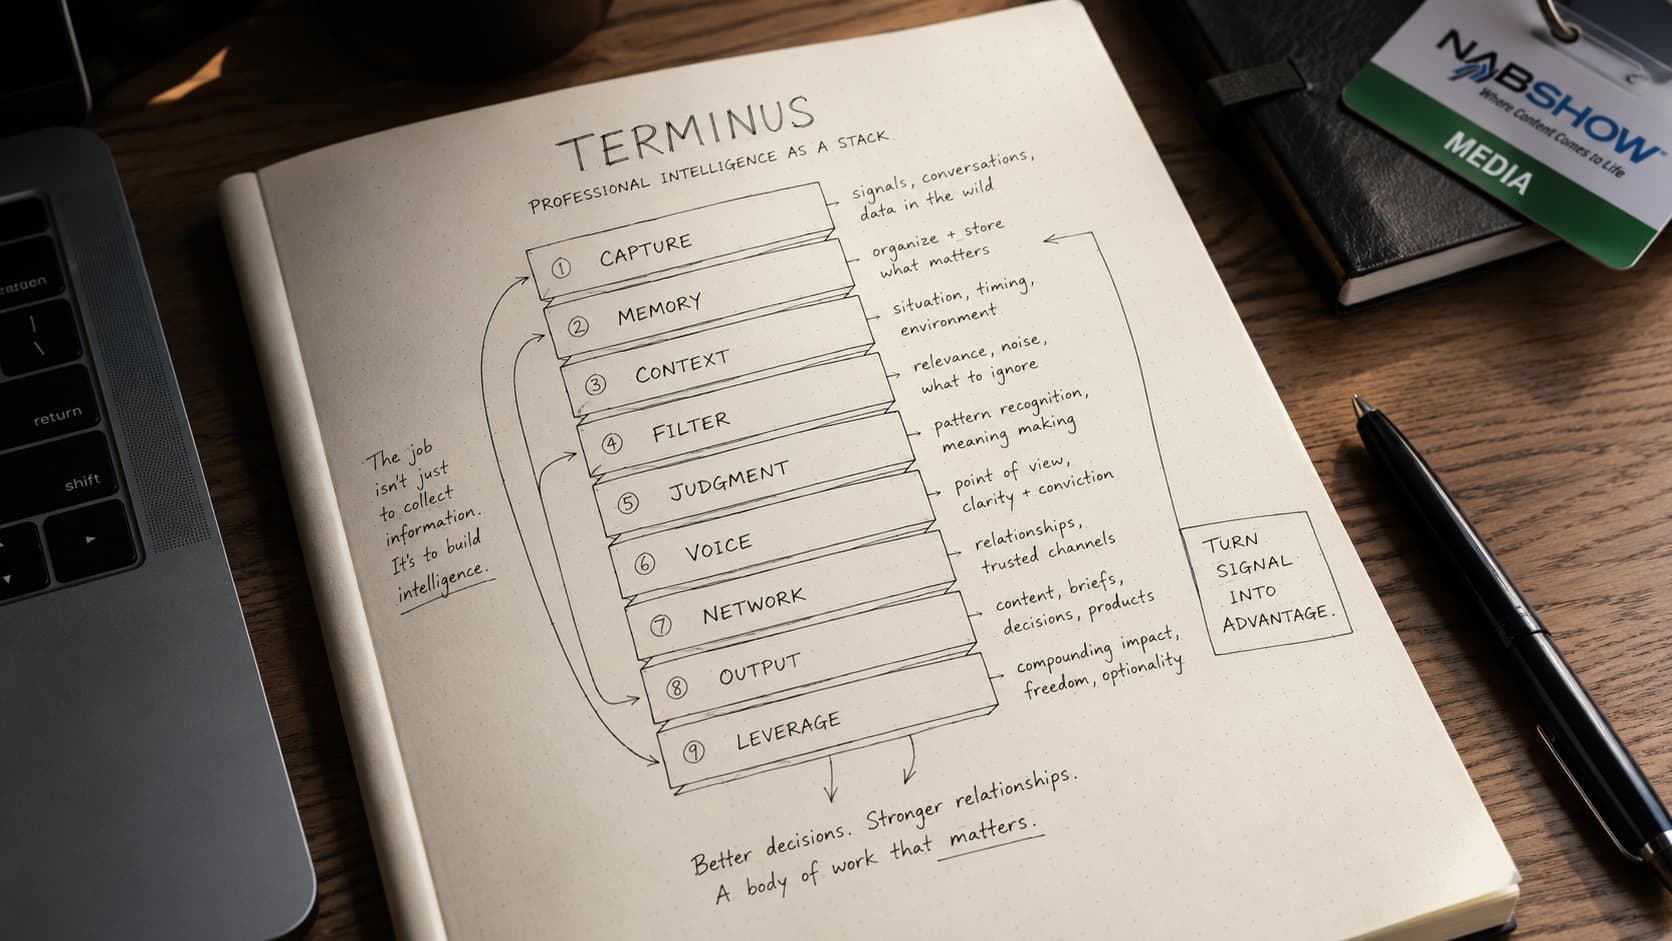 TERMINUS
PROFESSIONAL INTELLIGENCE AS A STACK
① CAPTURE
signals, conversations,
data in the wild
② MEMORY
organize + store
what matters
③ CONTEXT
situation, timing,
environment
④ FILTER
relevance, noise,
what to ignore
⑤ JUDGMENT
pattern recognition,
meaning making
⑥ VOICE
point of view,
clarity + conviction
⑦ NETWORK
relationships,
trusted channels
⑧ OUTPUT
content, briefs,
decisions, products
⑨ LEVERAGE
compounding impact,
freedom, optionality
The job
isn't just
to collect
information.
It's to build
intelligence.
TURN
SIGNAL
INTO
ADVANTAGE.
Better decisions. Stronger relationships.
A body of work that matters.
NABSHOW
Where Content Comes to Life
MEDIA
|
\
return
shift